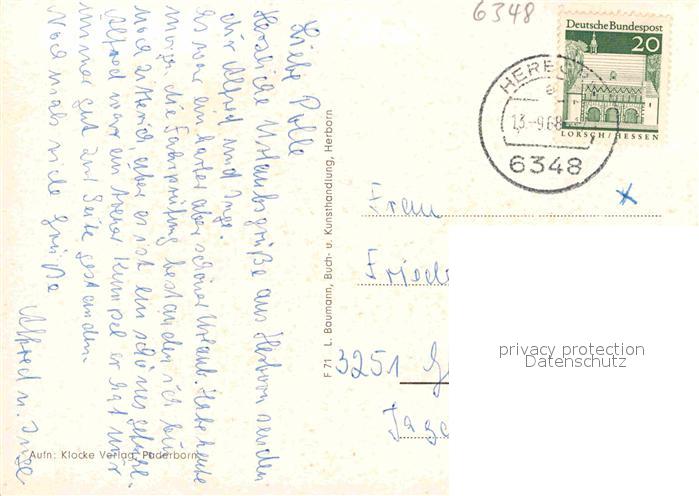 6348
Deutsche Bundespost
20
LORSCH/HESSEN
HERBO
13-9.68
6348
Liebe Polle
Herzliche Urlaubsgrüße aus Herborn senden
dir Alfred und Inge.
Es war ein harter aber schöner Urlaub. Habe heute
morgen die Fahrprüfung bestanden. ich bin
noch zittrich, aber es ist ein schönes gefühl.
Alfred war ein treuer Kumpel er hat mir
immer gut zur Seite gestanden.
Noch mals viele Grüße
Alfred u. Inge
F 71 L. Baumann, Buch- u. Kunsthandlung, Herborn
Aufn: Klocke Verlag, Paderborn
Frau
Fried
3251
privacy protection
Datenschutz